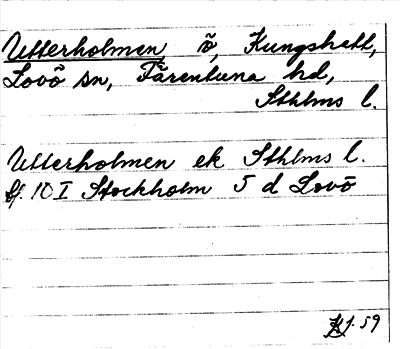 Utterholmen ö, Kungshatt,
Lovö sn, Färentuna hd,
Sthlms l.
Utterholmen ek Sthlms l.
bl. 10 I Stockholm 5 d Lovö
59